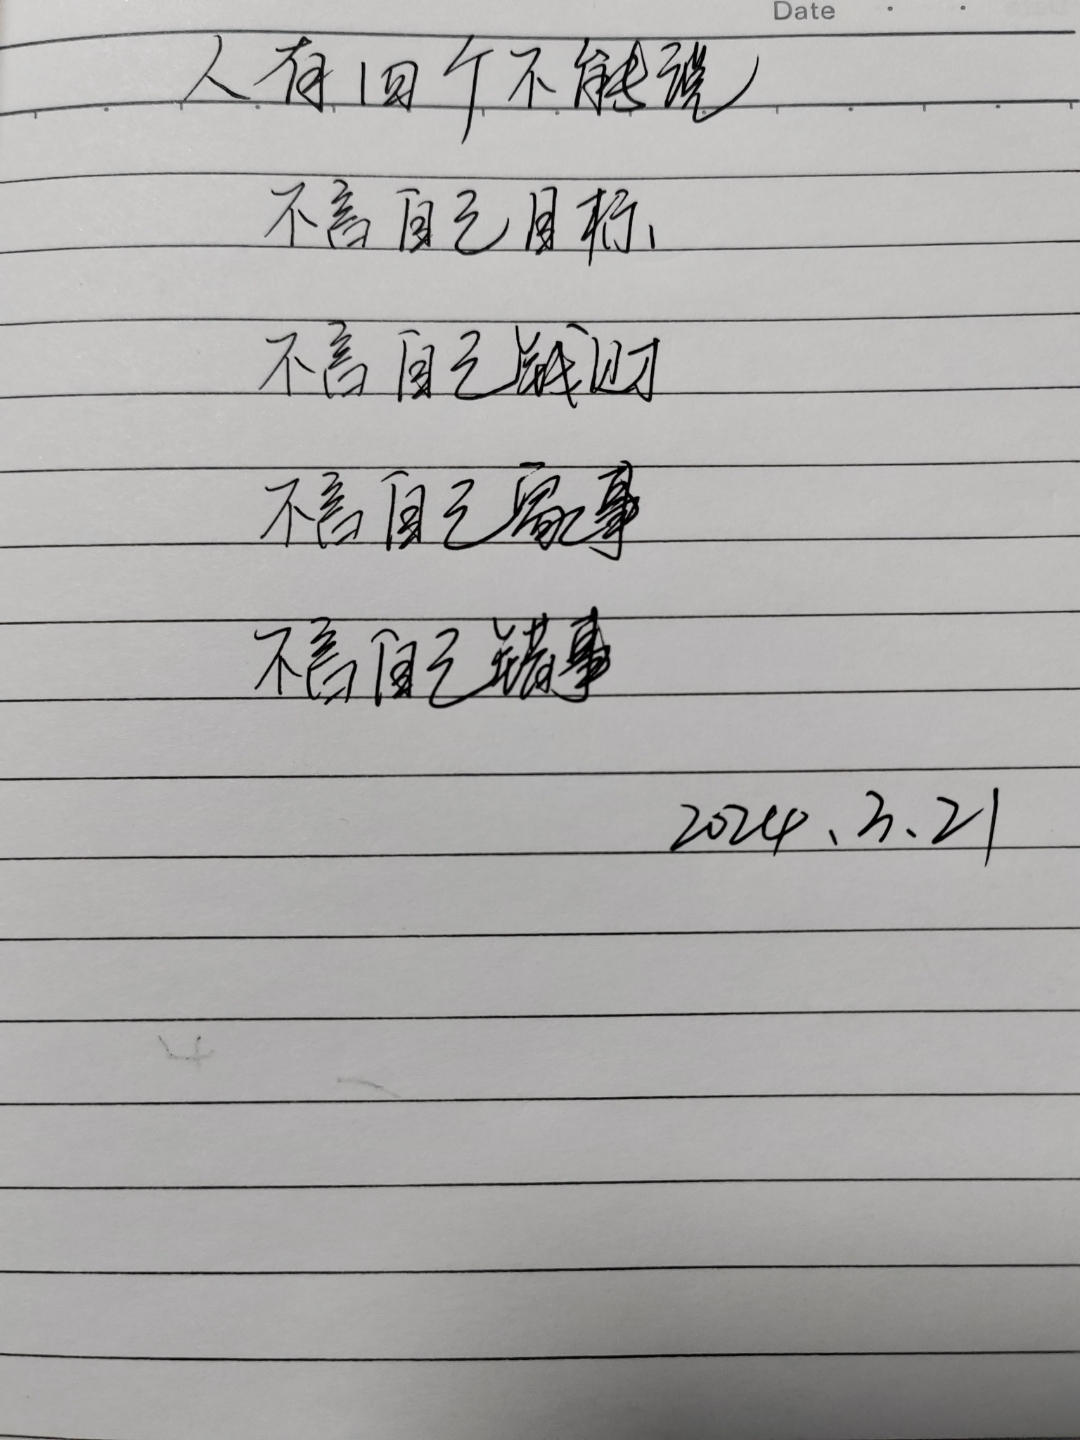 Date
人有四个不能说
不言自己目标、
不言自己钱财
不言自己家事
不言自己错事
2024、3、21